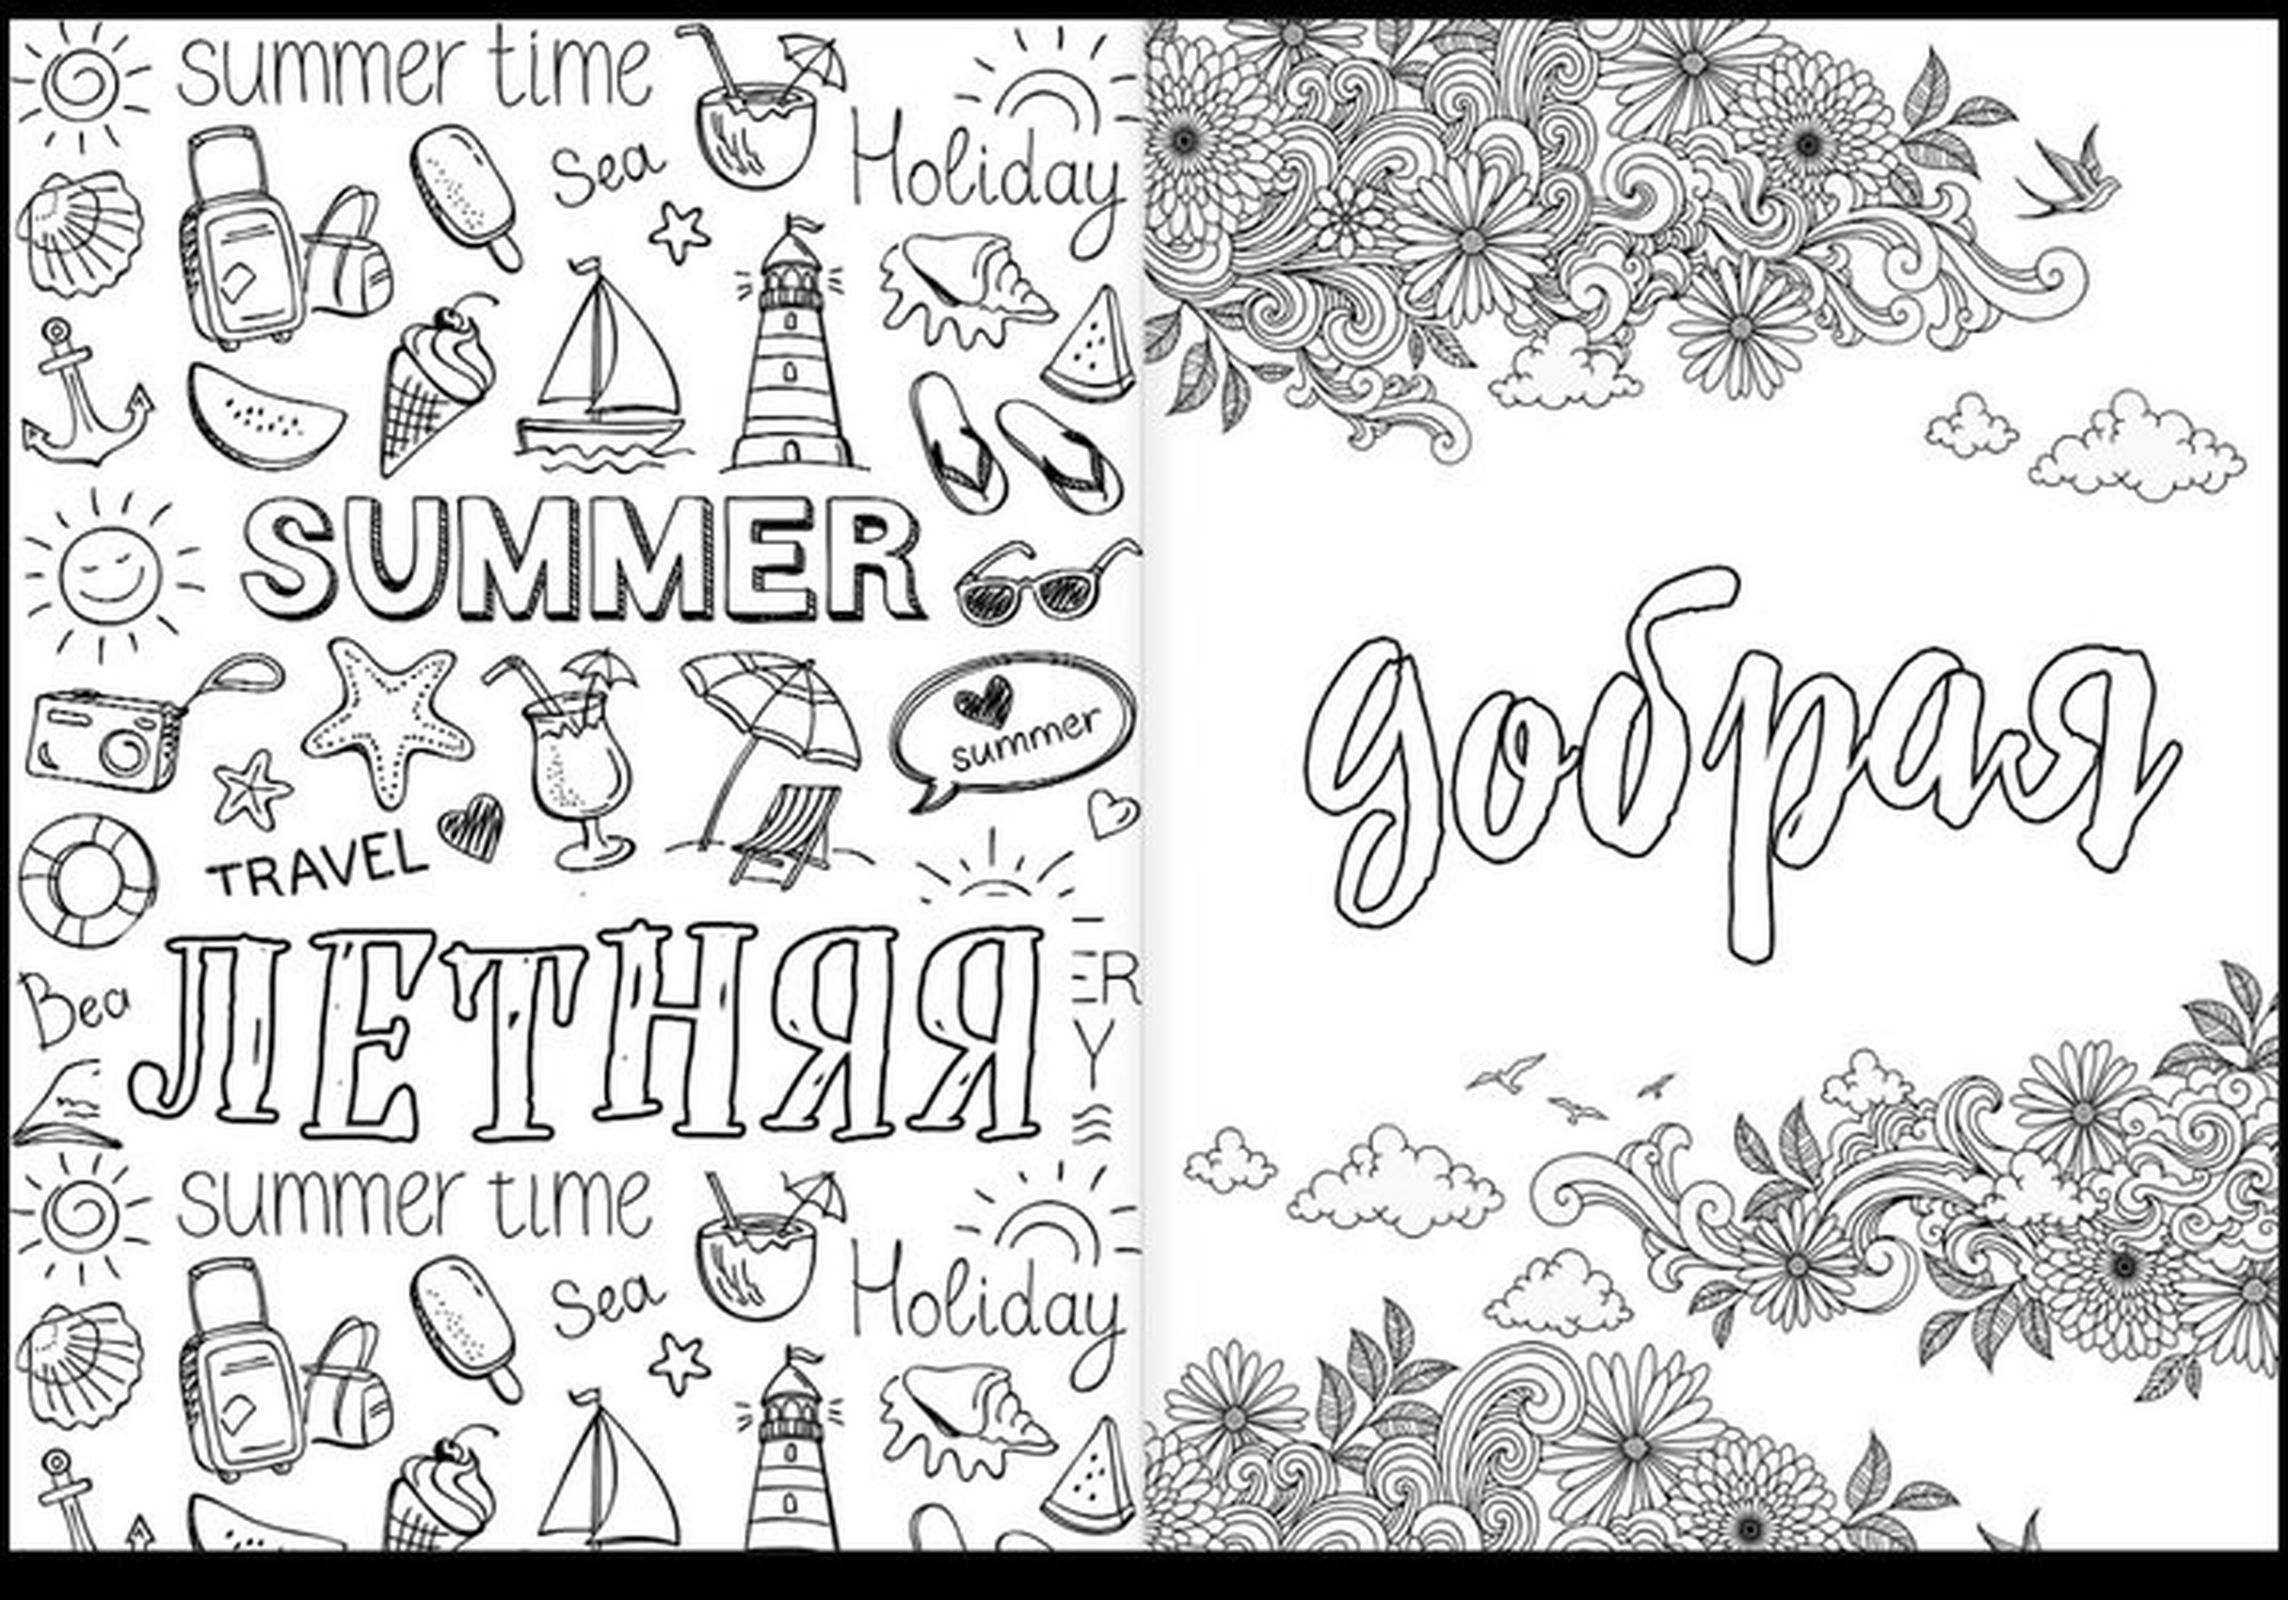 summer time
sea
Holiday
SUMMER
summer
TRAVEL
ЛЕТНЯЯ
Bea
ER
Y
summer time
sea
Holiday
добрая